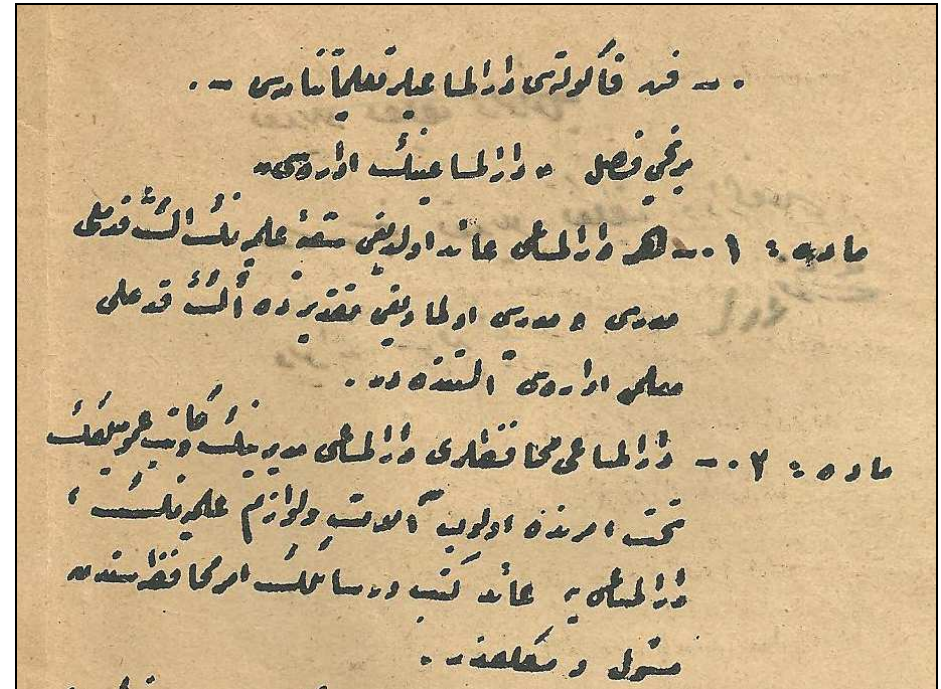 .- فن فاكولته‌سى دارالمساعيلر تعليماتنامه‌سى -.
برنجى فصل " دارالمساعينك اداره‌سى "
ماده : ١ .- هر دارالمساعى عائد اولديغى شعبهٔ علميه‌نك اڭ قدملى
مدرسى و مدرسى اولماديغى تقديرده اڭ قدملى
معلمى اداره‌سى التنده در .
ماده : ٢ .- دارالمساعى محافظلرى دارالمساعى مديرينك و كاتب عموميلكك
تحت امرنده اولوب آلات و لوازم علميه‌نك ،
دارالمساعى يه عائد كتب و رسائلك امر محافظه سندن
مسئول و مكلفدر .